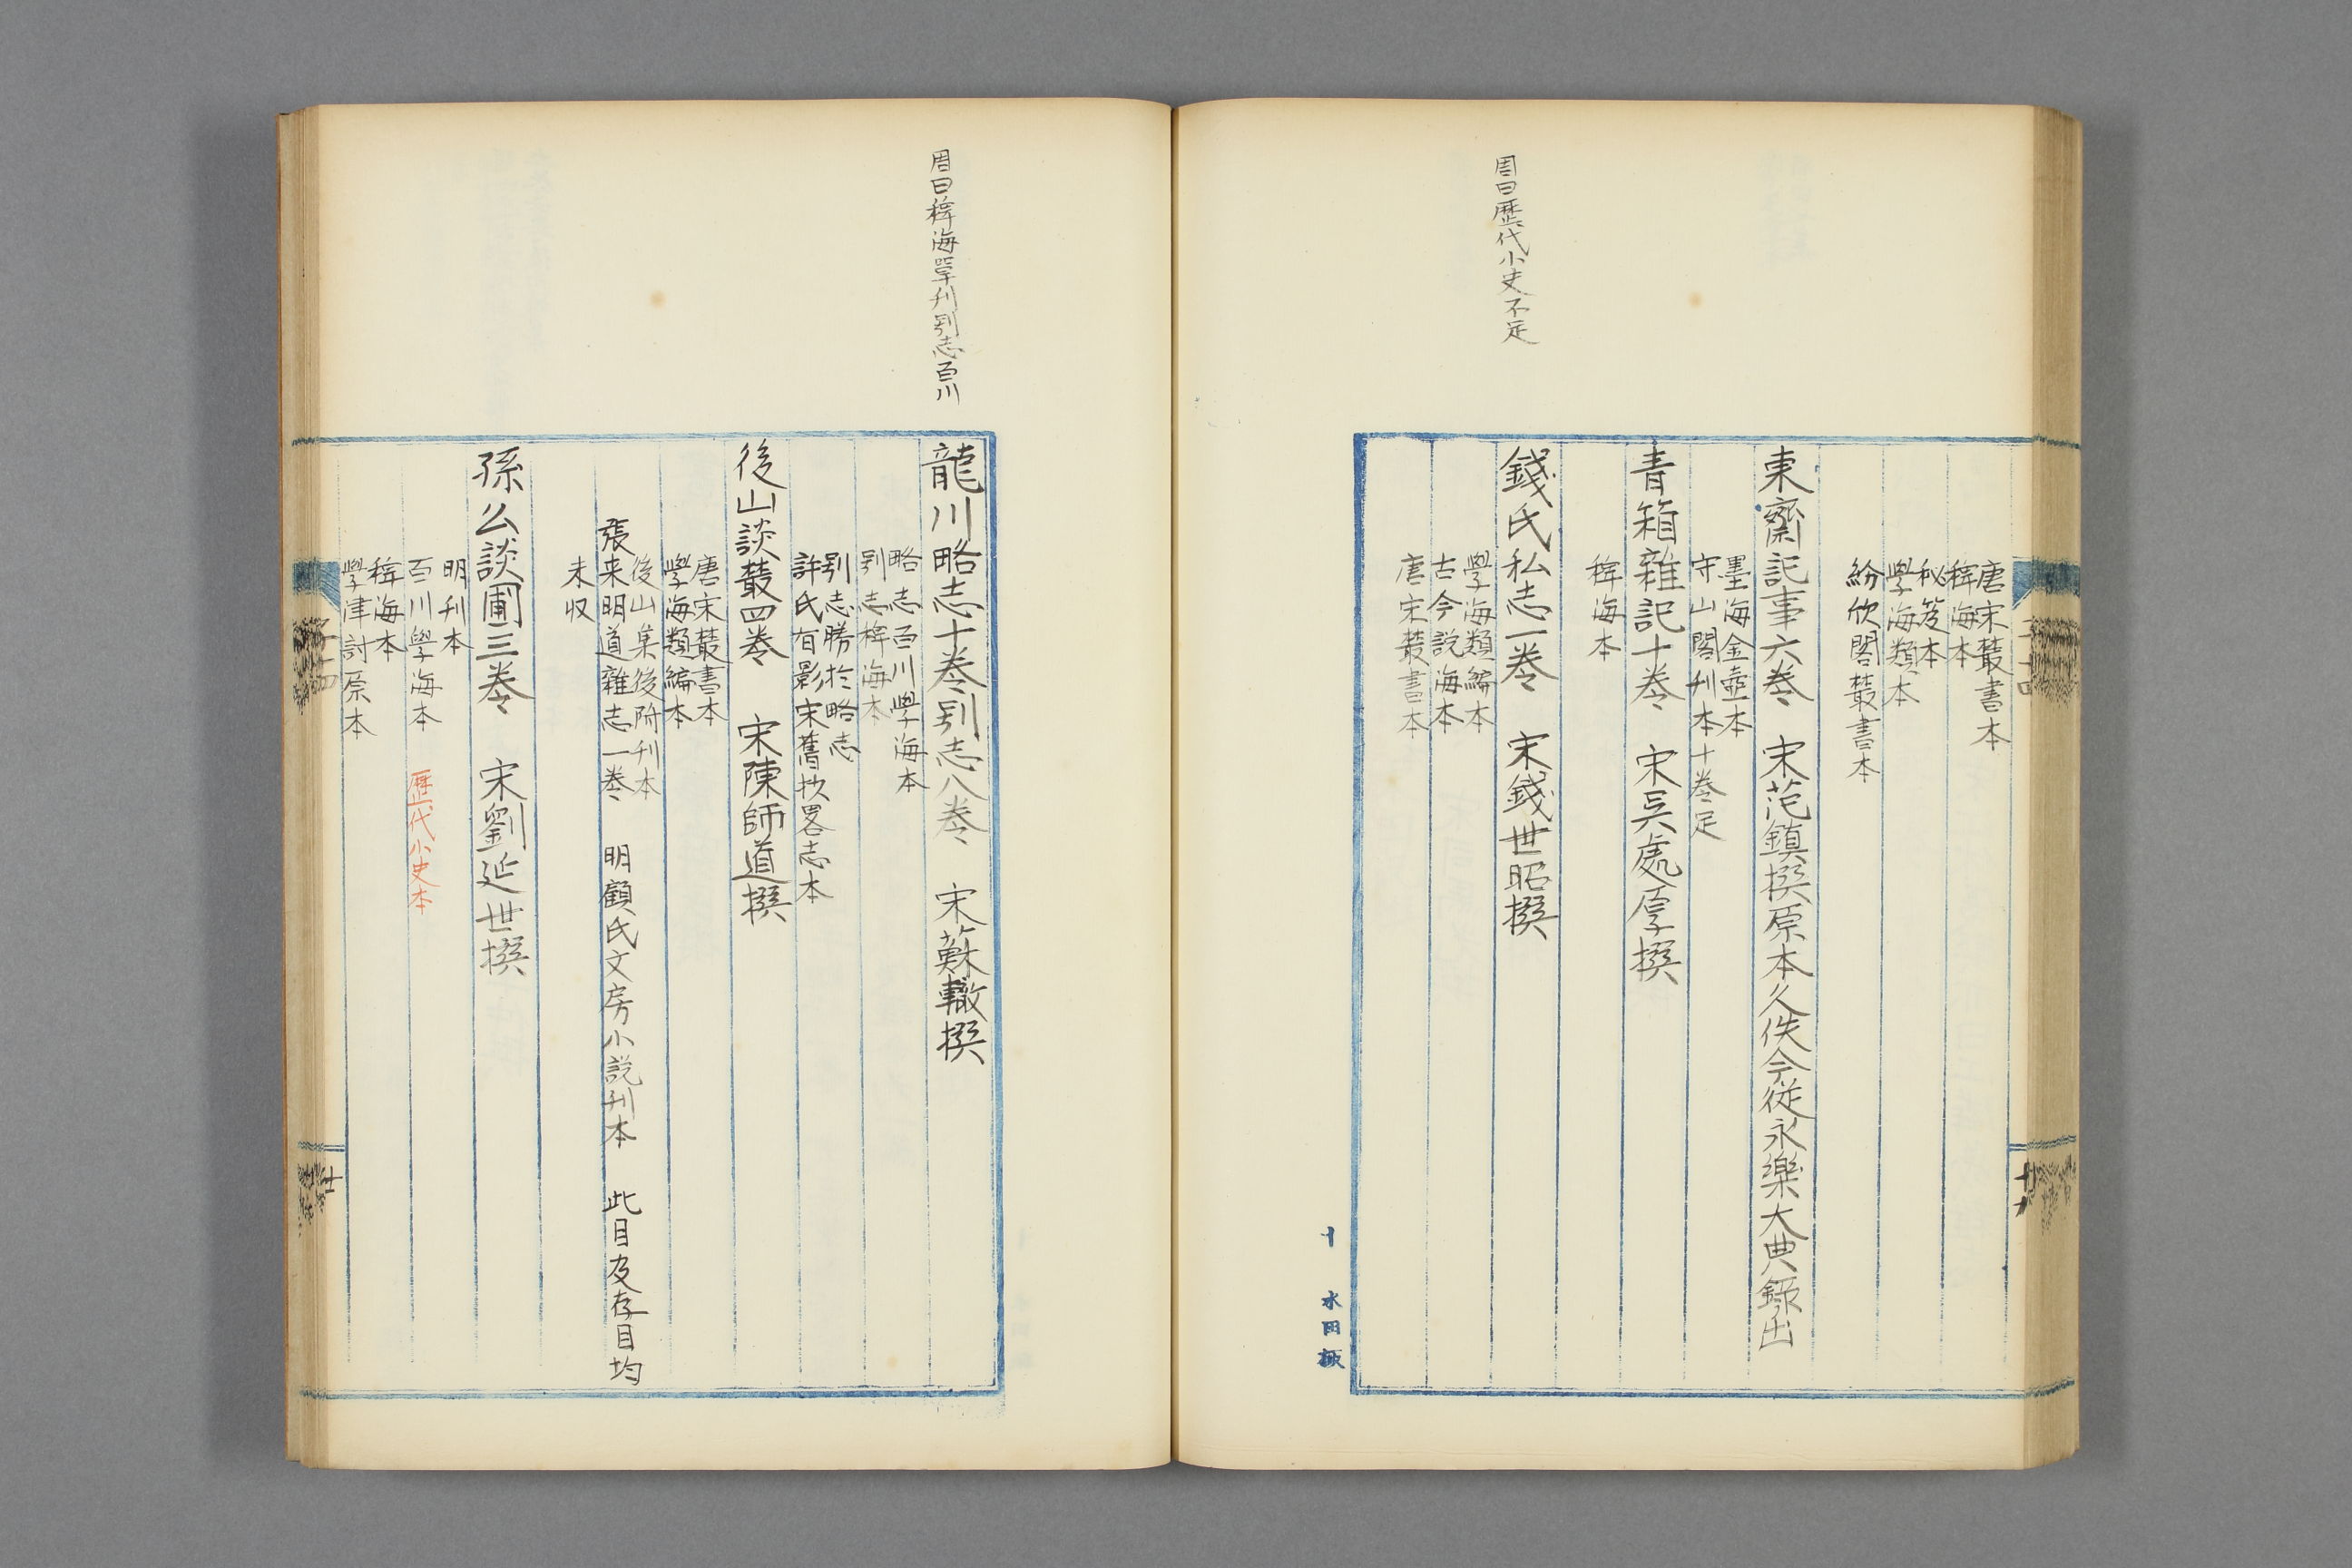 周曰歷代小史不足
唐宋叢書本
稗海本
秘笈本
學海類本
紛欣閣叢書本
東齋記事六卷　宋范鎮撰原本久佚今從永樂大典錄出
墨海金壺本
守山閣刊本十卷足
青箱雜記十卷　宋吳處厚撰
稗海本
錢氏私志一卷　宋錢世昭撰
學海類編本
古今説海本
唐宋叢書本
十九
十　水田板
周曰稗海單刊別志百川
龍川略志十卷別志八卷　宋蘇轍撰
略志百川學海本
別志稗海本
別志勝於略志
許氏有影宋舊抄畧志本
後山談叢四卷　宋陳師道撰
唐宋叢書本
學海類編本
後山集後附刊本
張耒明道雜志一卷　明顧氏文房小説刊本　此目及存目均
未収
孫公談圃三卷　宋劉延世撰
明刊本
百川學海本　歷代小史本
稗海本
學津討原本
子十四
廿